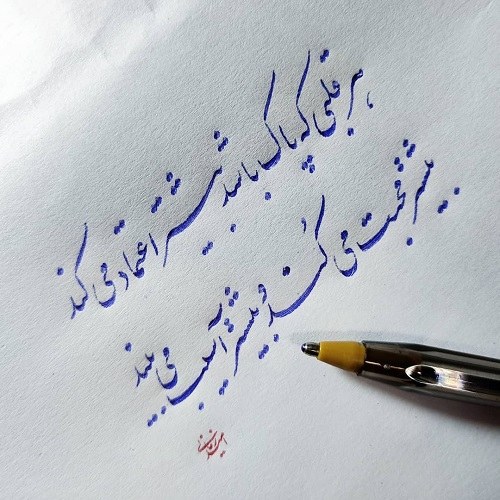 هر قلبی که پاک باشد بیشتر اعتماد می کند
بیشتر محبت می کُند و بیشتر آسیب می بیند